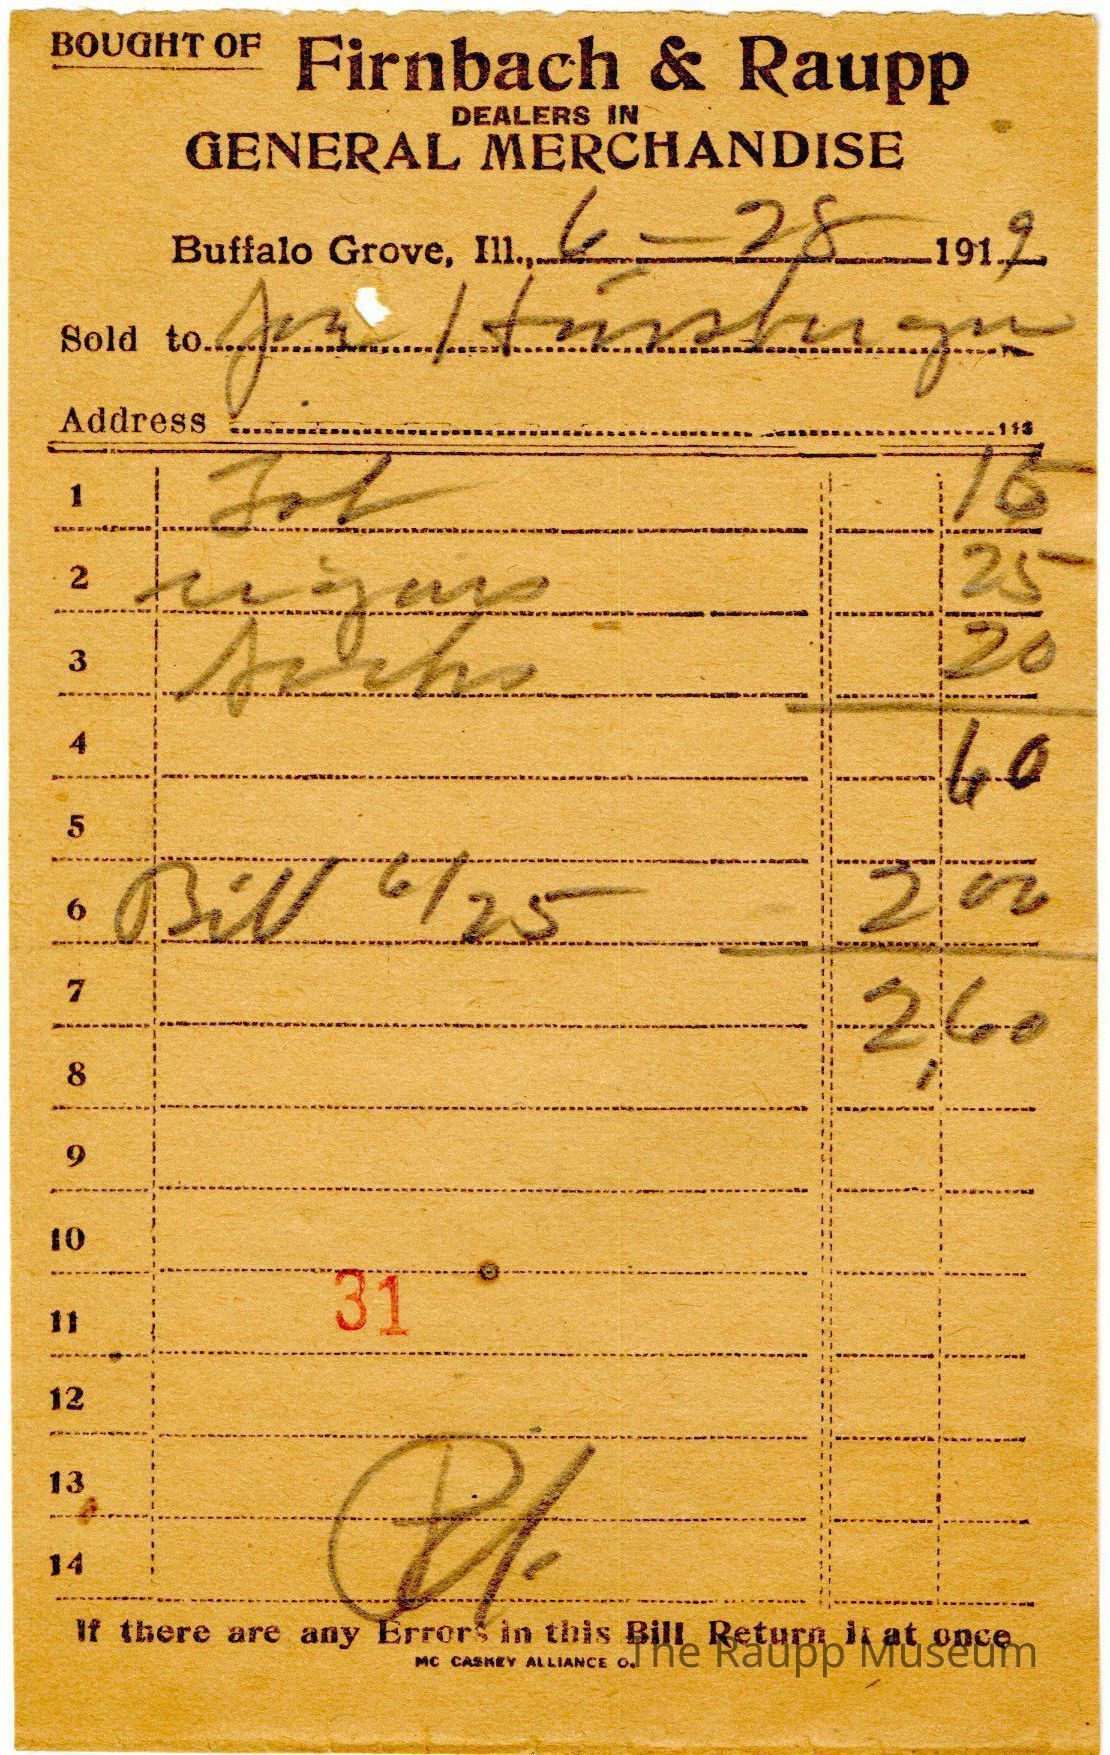 BOUGHT OF Firnbach & Raupp
DEALERS IN
GENERAL MERCHANDISE
Buffalo Grove, Ill., 6-28 1919
Sold to
Address 113
1 Tob 15
2 cigars 25
3 Socks 20
4 60
5
6 Bill 6/25 2 00
7 2,60
8
9
10
11 31
12
13
14
If there are any Errors in this Bill Return it at once
MC CASKEY ALLIANCE O.
The Raupp Museum